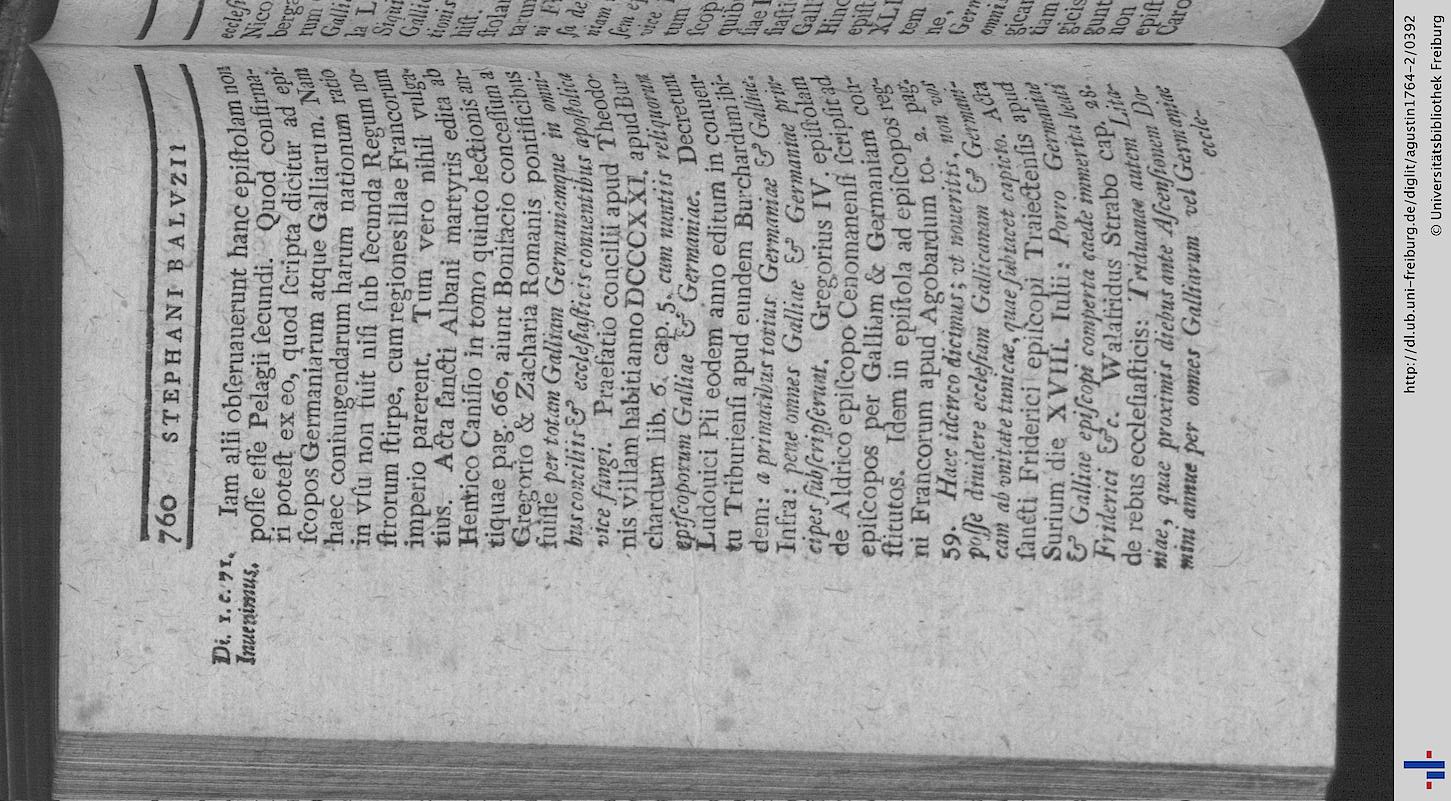 760 STEPHANI BALVZII
Di. 1. c. 71.
Inuenimus.
Iam alii obſeruauerunt hanc epiſtolam non
poſſe eſſe Pelagii ſecundi. Quod confirma-
ri poteſt ex eo, quod ſcripta dicitur ad epi-
ſcopos Germaniarum atque Galliarum. Nam
haec coniungendarum harum nationum ratio
in vſu non fuit niſi ſub ſecunda Regum no-
ſtrorum ſtirpe, cum regiones illae Francorum
imperio parerent. Tum vero nihil vulga-
tius. Acta ſancti Albani martyris edita ab
Henrico Caniſio in tomo quinto lectionis an-
tiquae pag. 660, aiunt Bonifacio conceſſum a
Gregorio & Zacharia Romanis pontificibus
fuiſſe per totam Galliam Germaniamque in omni-
bus conciliis & eccleſiaſticis conuentibus apoſtolica
vice fungi. Praefatio concilii apud Theodo-
nis Villam habiti anno DCCCXXI. apud Bur-
chardum lib. 6. cap. 5. cum nuntiis reliquorum
epiſcoporum Galliae & Germaniae. Decretum
Ludouici Pii eodem anno editum in conuen-
tu Triburienſi apud eundem Burchardum ibi-
dem: a primatibus totius Germaniae & Galliae.
Infra: pene omnes Galliae & Germaniae prin-
cipes ſubſcripſerunt. Gregorius IV epiſtolam
de Aldrico epiſcopo Cenomanenſi ſcripſit ad
epiſcopos per Galliam & Germaniam con-
ſtitutos. Idem in epiſtola ad epiſcopos reg-
ni Francorum apud Agobardum to. 2. pag.
59. Haec idcirco dicimus; vt noueritis, non vos
poſſe diuidere eccleſiam Gallicanam & Germani-
cam ab vnitate tunicae, quae ſubiacet capicio. Acta
ſancti Friderici epiſcopi Traiectenſis apud
Surium die XVIII. Iulii: Porro Germaniae
& Galliae epiſcopi comperta caede immerita beati
Friderici &c. Walafridus Strabo cap. 28.
de rebus eccleſiaſticis: Triduanae autem Lita-
niae, quae proximis diebus ante Aſcenſionem Do-
mini annue per omnes Galliarum vel Germaniae
eccle-
http://dl.ub.uni-freiburg.de/diglit/agustin1764-2/0392
© Universitätsbibliothek Freiburg